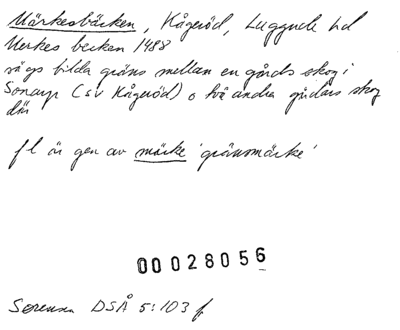 Märkesbäcken, Kågeröd, Luggude hd
Merkes becken 1488
sägs bilda gräns mellan en gårds skog i
Sonarp (sv Kågeröd) o två andra gårdars skog
där
fl är gen av märke 'gränsmärke'
00028056
Sörensen DSÅ 5:103 f